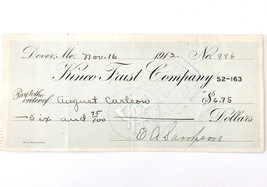 Dover, Me. Nov. 16 1912 No. 996
Kineo Trust Company 52-163
Pay to the
order of August Carlson $6.75
Six and 75/100 Dollars